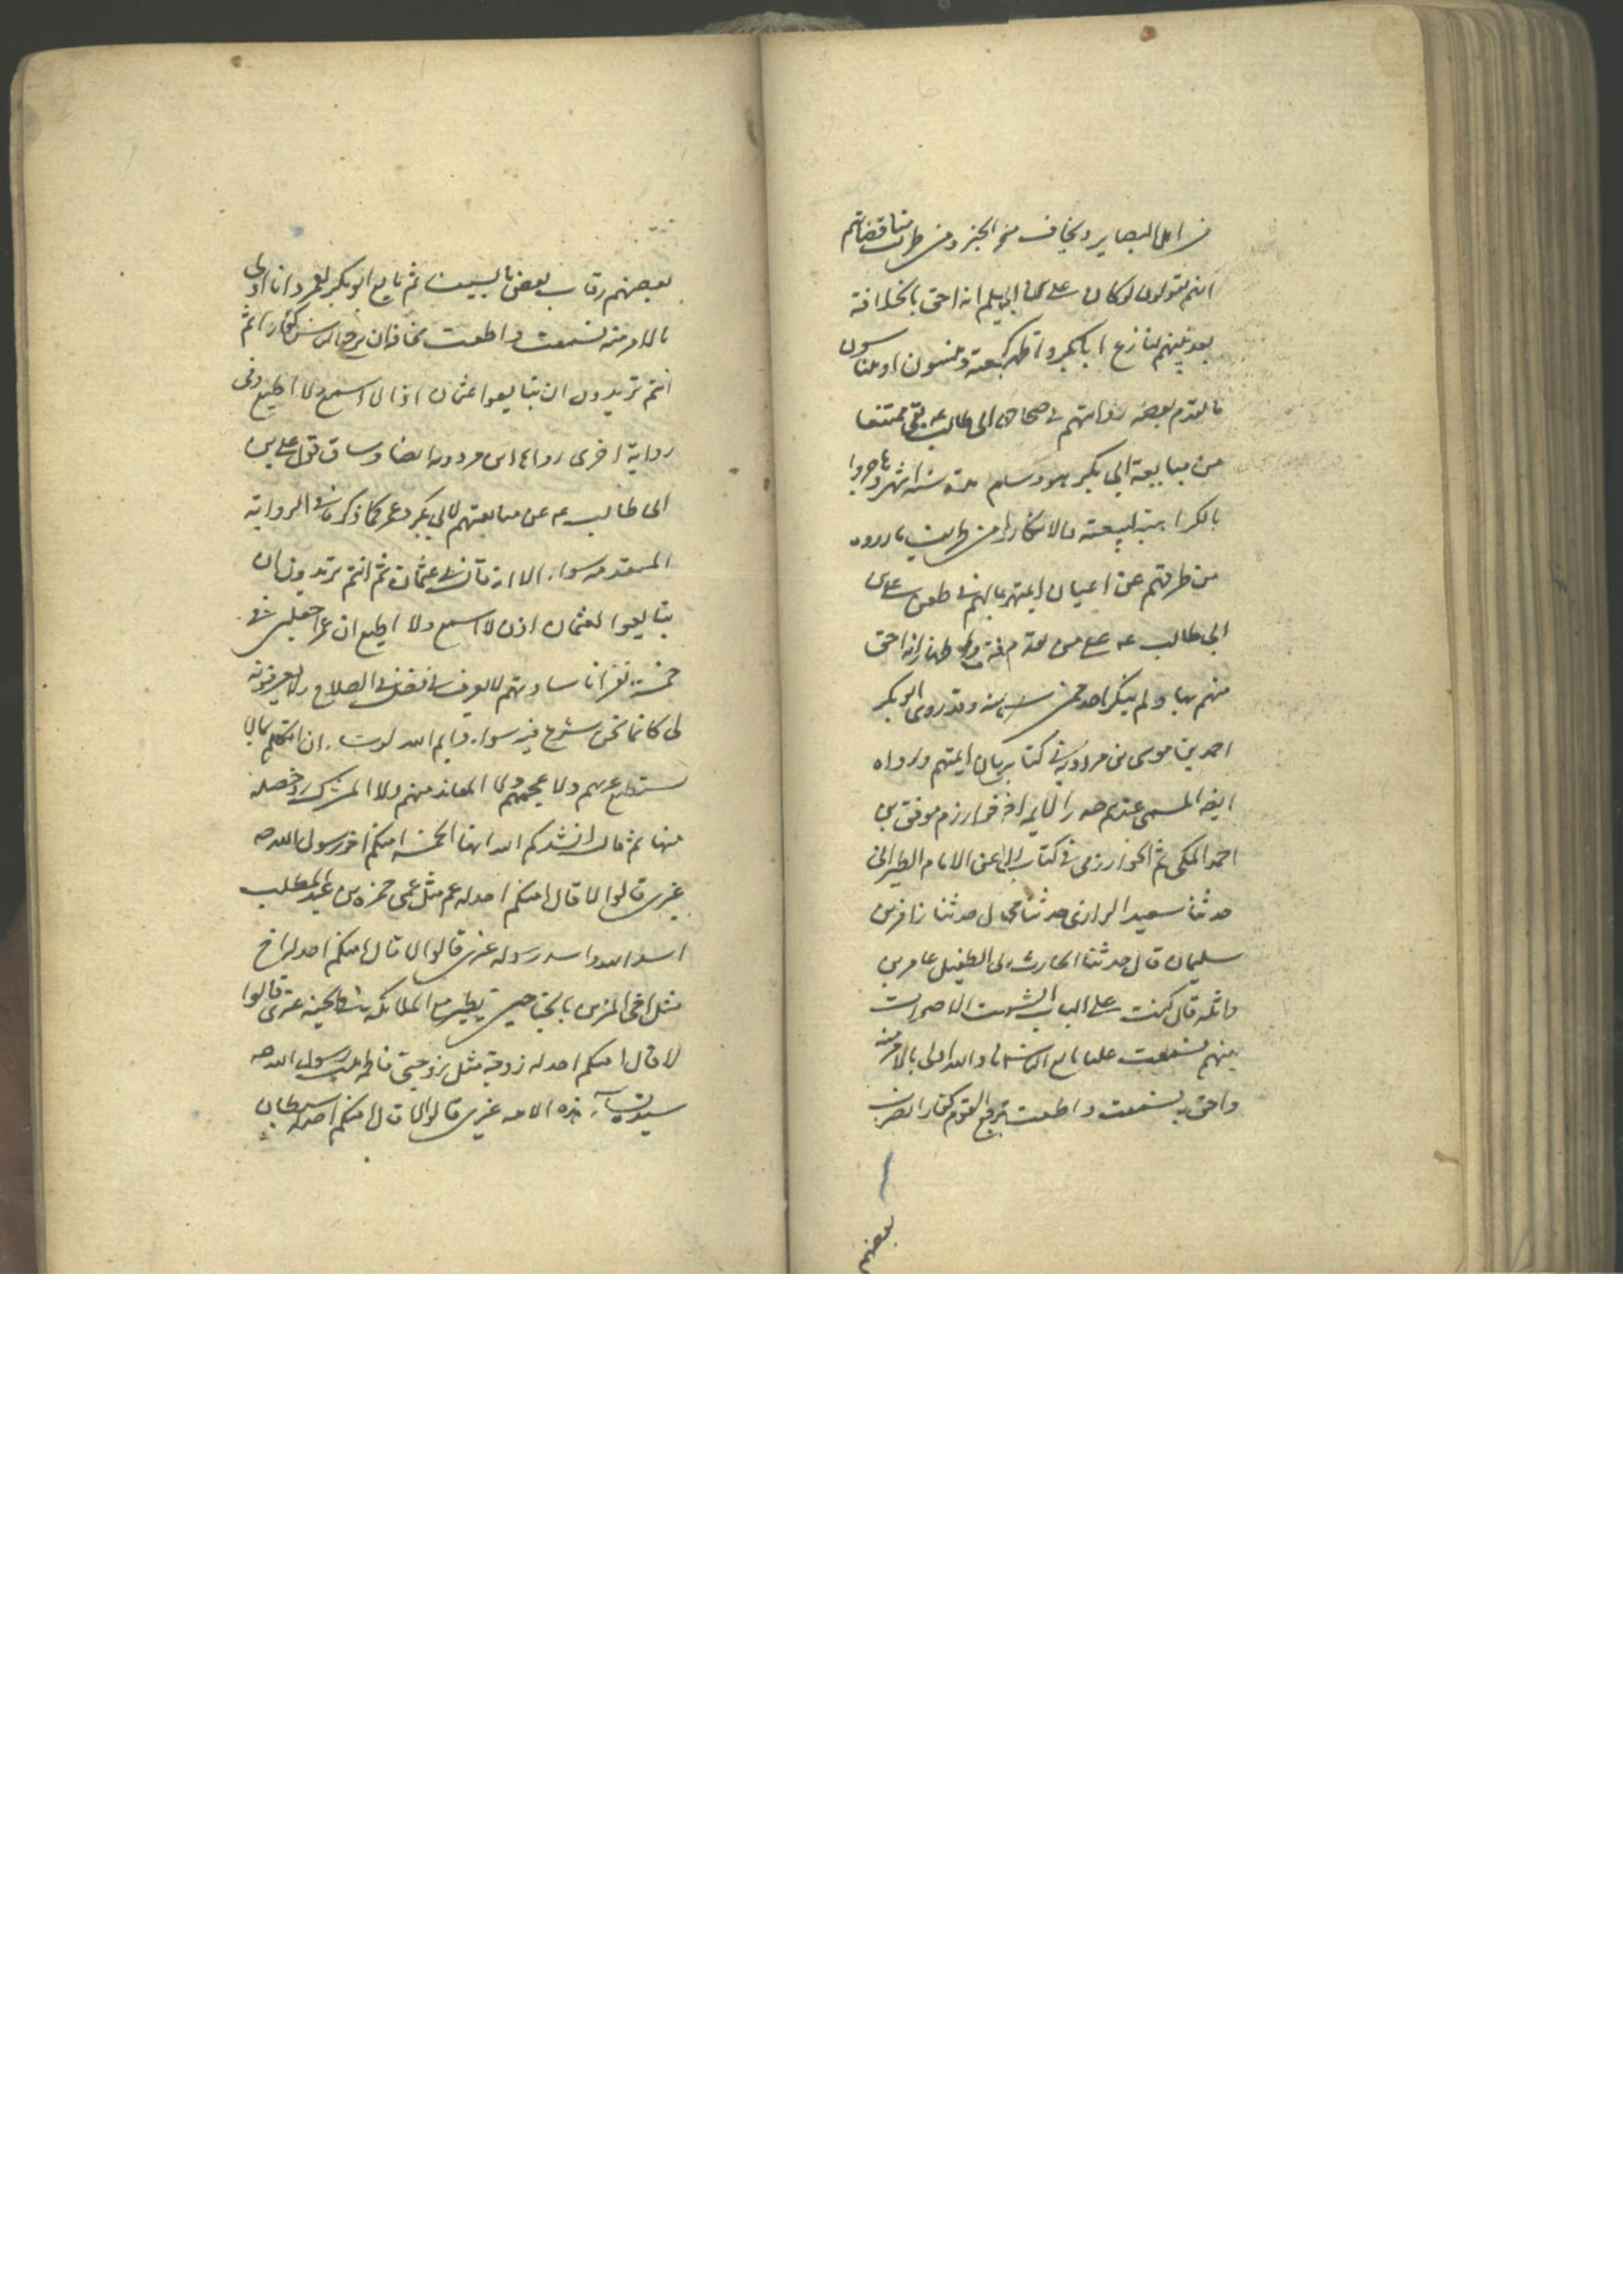 من اهل البصاير ويخاف منح الجبر ومن طريف مناقضاتهم
انهم يقولون لو كان علي بن ابي يعلم انه احق بالخلافة
بعد نبيهم لنازع ابا بكر واظهر وينسون او يتناسون
ما تقدم بعضه روايتهم في صحاحهم ابي طالب عه بقي ممتنعا
من مبايعة ابي بكر هو وبنو هاشم ستة اشهر
بالكراهية لبيعته والانكار لها ومن طريف ما رووه
من طرقهم عن اعيان ايمتهم في طعن علي بن
ابي طالب عه على من تقدم واظهاره انه احق
منهم بها ولم ينكر احد وقد روى ابو بكر
احمد بن موسى بن مردويه في كتابه وهو كان ايمتهم ورواه
ايضا المسمى عندهم صدر الائمة اخطب خوارزم موفق بن
احمد المكي ثم الخوارزمي في كتاب عن الامام الطبراني
حدثنا سعيد الرازي حدثنا محمد قال حدثنا زافر بن
سليمان قال حدثنا الحارث بن ابي الطفيل عامر بن
واثلة قال كنت على الباب يوم الشورى الاصوات
بينهم فسمعت عليا بايع الناس والله اولى بالامر منه
واحق به فسمعت واطعت ان يرجع القوم كفارا يضرب
بعضهم
بعضهم رقاب بعض بالسيف ثم بايع ابو بكر لعمر وانا اولى
بالامر منه فسمعت واطعت مخافة ان يرجع الناس كفارا ثم
انتم تريدون ان تبايعوا عثمان اذا لا اسمع ولا اطيع وفي
رواية اخرى رواها ابن مردويه ايضا وساق قول علي بن
ابي طالب عه عن مبايعتهم لابي بكر وعمر كما ذكر في الرواية
المتقدمة سواء الا انه قال في عثمان ثم انتم تريدون ان
تبايعوا لعثمان اذن لا اسمع ولا اطيع ان عمر جعلني في
خمسة نفر انا سادسهم لا يعرف لي فضل في الصلاح ولا يعرفونه
لي كانما نحن شرع فيه سواء وايم الله لو اشاء ان اتكلم ثم لا
يستطيع عربهم ولا عجمهم ولا المعاهد منهم ولا المشرك رد خصلة
منها ثم قال انشدكم الله ايها الخمسة امنكم اخو رسول الله صه
غيري قالوا لا قال امنكم احد له عم مثل عمي حمزة بن عبد المطلب
اسد الله واسد رسوله غيري قالوا لا قال امنكم احد له اخ
مثل اخي المزين بالجناحين يطير مع الملائكة في الجنة غيري قالوا
لا قال امنكم احد له زوجة مثل زوجتي فاطمة بنت رسول الله صه
سيدة نساء هذه الامه غيري قالوا لا قال امنكم احد له سبطان